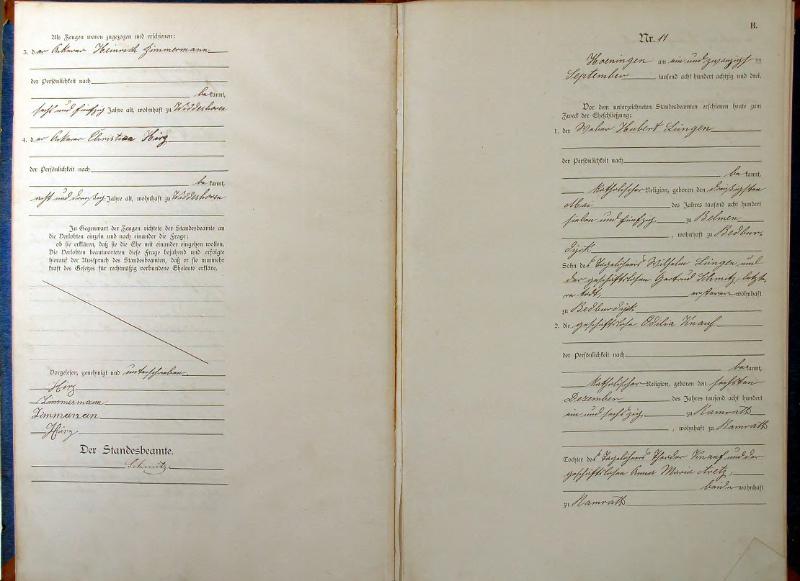 Als Zeugen waren zugezogen und erschienen:
3. der Ackerer Heinrich Zimmermann
der Persönlichkeit nach
be kannt,
sechs und fünfzig Jahre alt, wohnhaft zu Widdeshoven
4. der Ackerer Christian Hürg
der Persönlichkeit nach
be kannt,
acht und dreißig Jahre alt, wohnhaft zu Widdeshoven
In Gegenwart der Zeugen richtete der Standesbeamte an
die Verlobten einzeln und nach einander die Frage:
ob sie erklären, daß sie die Ehe mit einander eingehen wollen.
Die Verlobten beantworteten diese Frage bejahend und erfolgte
hierauf der Ausspruch des Standesbeamten, daß er sie nunmehr
kraft des Gesetzes für rechtmäßig verbundene Eheleute erkläre.
Vorgelesen, genehmigt und unterschrieben
Zimmermann
Zimmerman
Der Standesbeamte.
Schmitz
B.
Nr. 11
Hoeningen am ein und zwanzigsten
September tausend acht hundert achtzig und drei.
Vor dem unterzeichneten Standesbeamten erschienen heute zum
Zweck der Eheschließung:
1. der Weber Hubert Lüngen
der Persönlichkeit nach
be kannt,
katholischer Religion, geboren den dreißigsten
Mai des Jahres tausend acht hundert
sieben und fünfzig zu Belmen
, wohnhaft zu Bedbur
dyck
Sohn des Tagelöhners Wilhelm Lüngen und
der geschäftslosen Gertrud Schmitz, letzte
re todt, ersterer wohnhaft
zu Bedburdyck
2. die geschäftslose Odilia Knauf
der Persönlichkeit nach
be kannt,
katholischer Religion, geboren den sechsten
Dezember des Jahres tausend acht hundert
ein und sechszig zu Ramrath
, wohnhaft zu Ramrath
Tochter des Tagelöhners Theodor Knauf und der
geschäftslosen Anna Maria Aretz,
beide wohnhaft
zu Ramrath